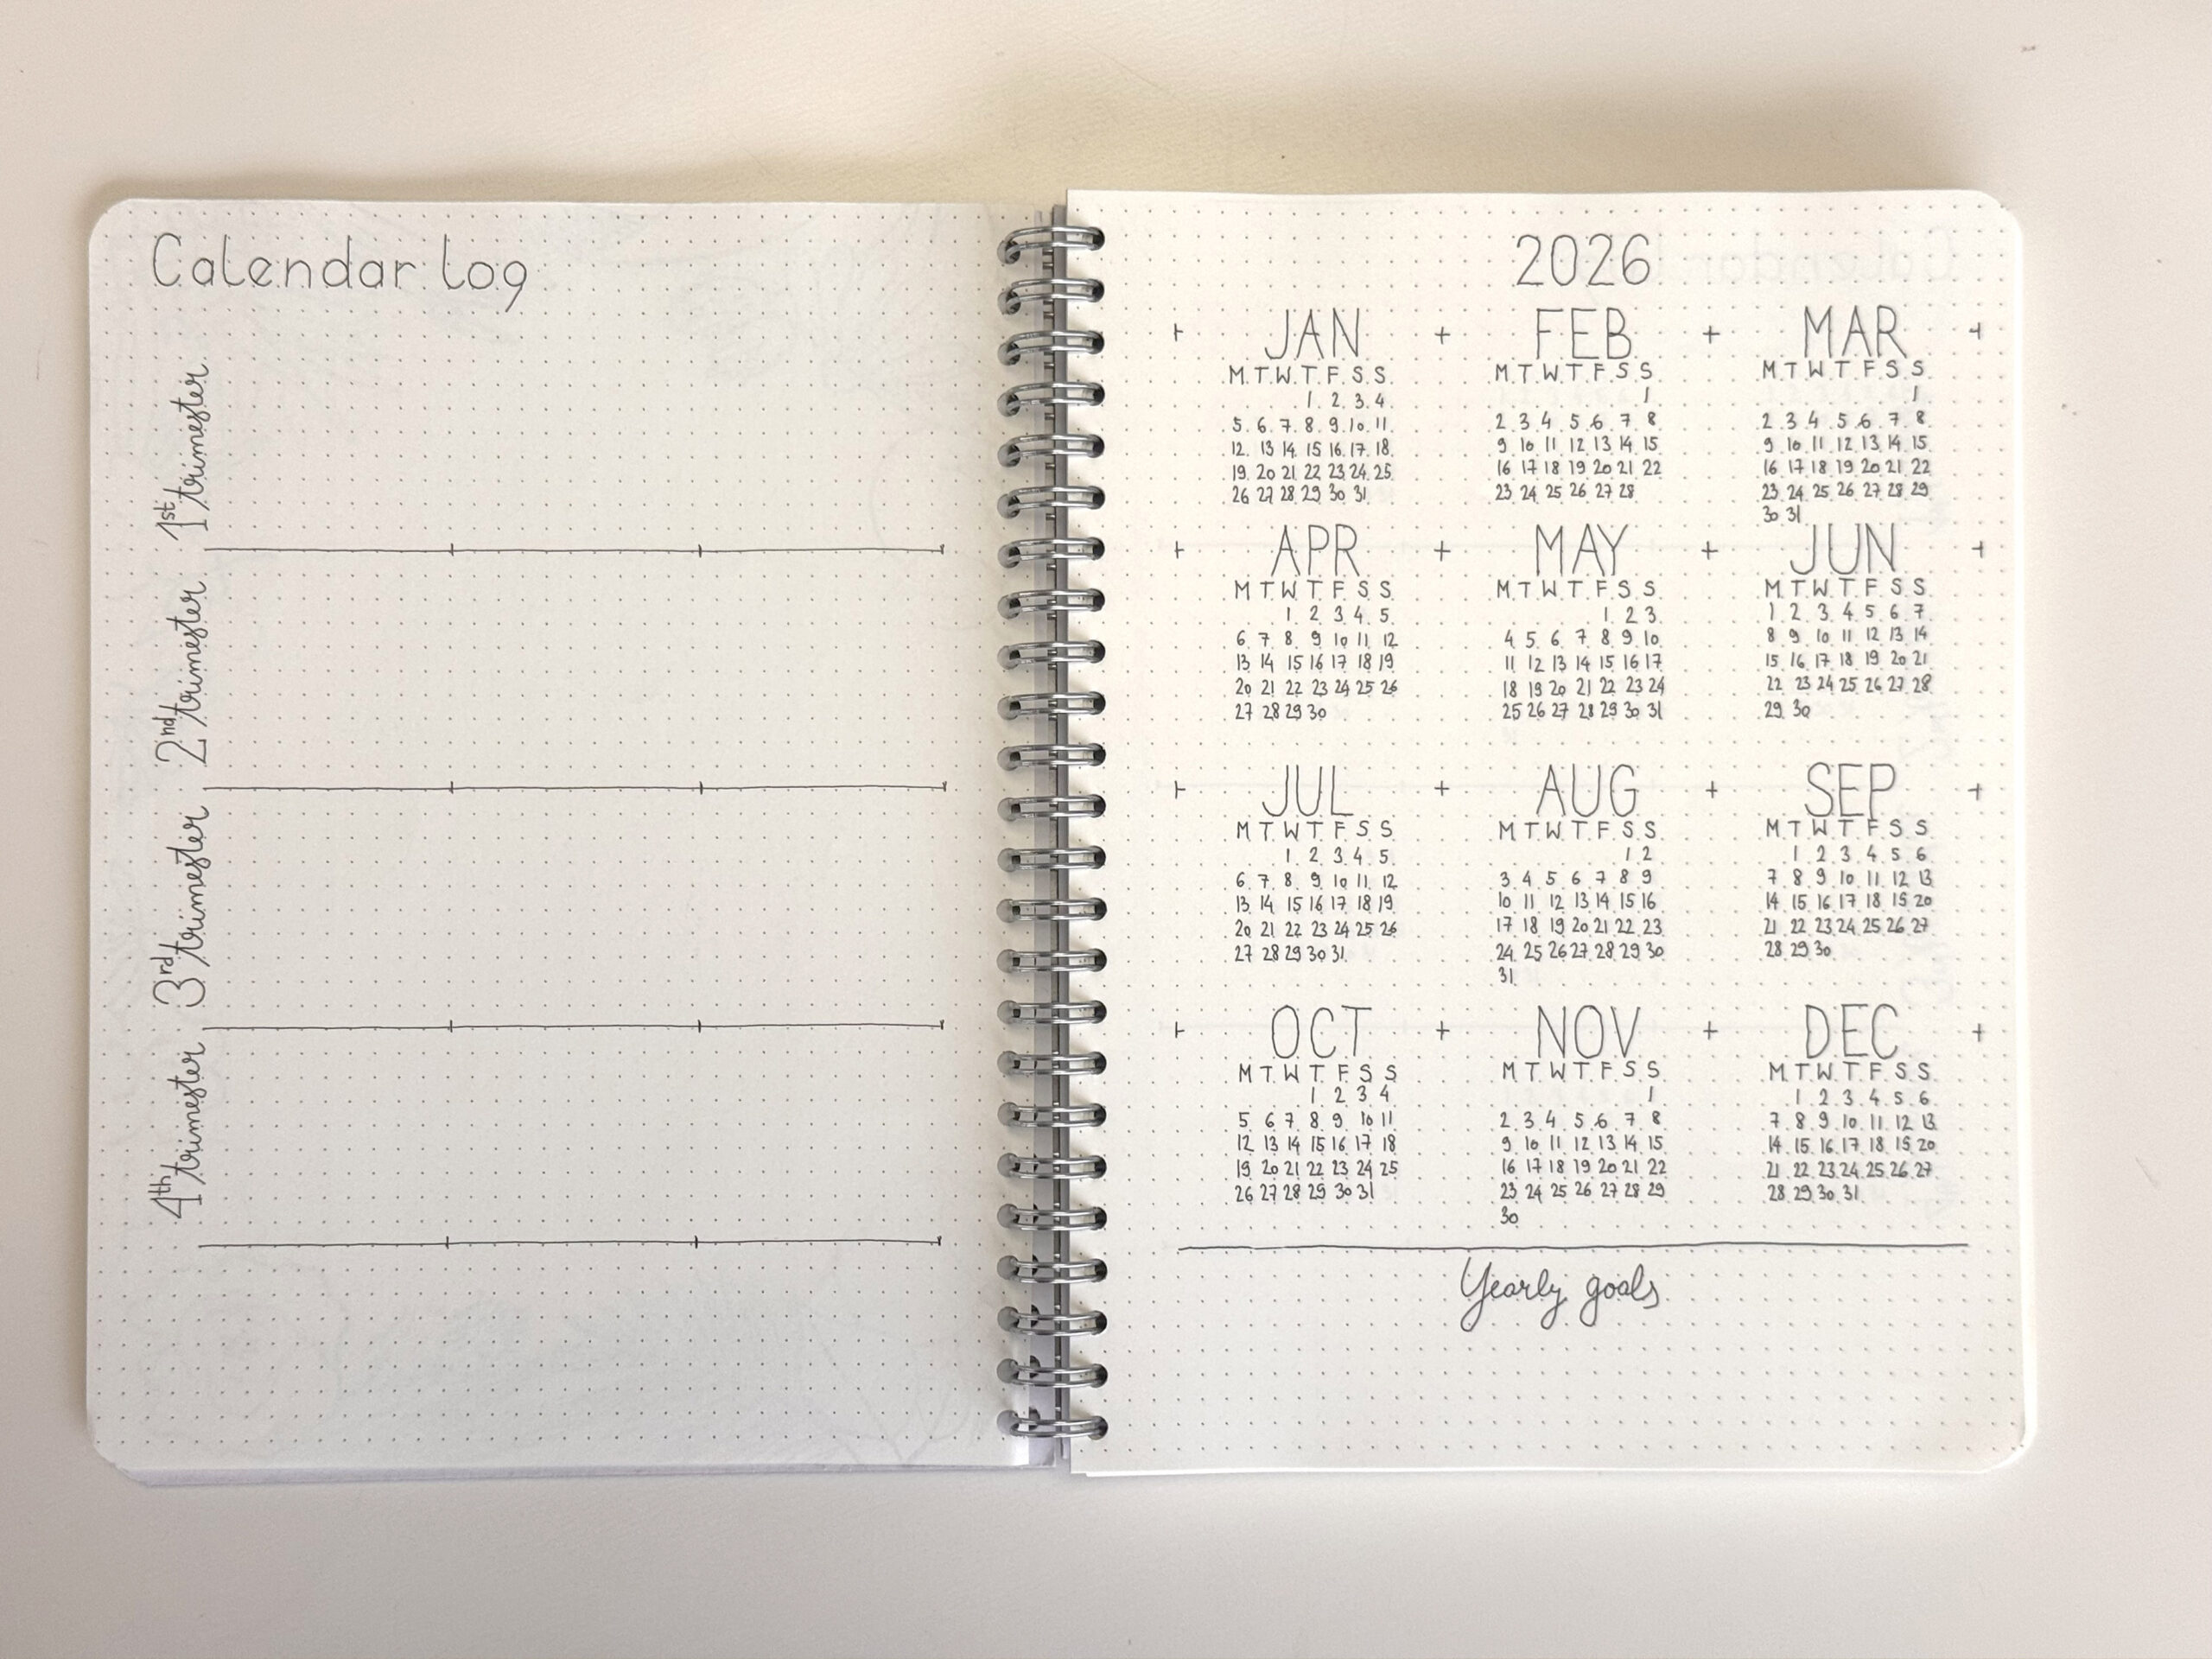 Calendar log
1st trimester
2nd trimester
3rd trimester
4th trimester
2026
JAN FEB MAR
M T W T F S S M T W T F S S M T W T F S S
1 2 3 4 1 1
5 6 7 8 9 10 11 2 3 4 5 6 7 8 2 3 4 5 6 7 8
12 13 14 15 16 17 18 9 10 11 12 13 14 15 9 10 11 12 13 14 15
19 20 21 22 23 24 25 16 17 18 19 20 21 22 16 17 18 19 20 21 22
26 27 28 29 30 31 23 24 25 26 27 28 23 24 25 26 27 28 29
30 31
APR MAY JUN
M T W T F S S M T W T F S S M T W T F S S
1 2 3 4 5 1 2 3 1 2 3 4 5 6 7
6 7 8 9 10 11 12 4 5 6 7 8 9 10 8 9 10 11 12 13 14
13 14 15 16 17 18 19 11 12 13 14 15 16 17 15 16 17 18 19 20 21
20 21 22 23 24 25 26 18 19 20 21 22 23 24 22 23 24 25 26 27 28
27 28 29 30 25 26 27 28 29 30 31 29 30
JUL AUG SEP
M T W T F S S M T W T F S S M T W T F S S
1 2 3 4 5 1 2 1 2 3 4 5 6
6 7 8 9 10 11 12 3 4 5 6 7 8 9 7 8 9 10 11 12 13
13 14 15 16 17 18 19 10 11 12 13 14 15 16 14 15 16 17 18 19 20
20 21 22 23 24 25 26 17 18 19 20 21 22 23 21 22 23 24 25 26 27
27 28 29 30 31 24 25 26 27 28 29 30 28 29 30
31
OCT NOV DEC
M T W T F S S M T W T F S S M T W T F S S
1 2 3 4 1 1 2 3 4 5 6
5 6 7 8 9 10 11 2 3 4 5 6 7 8 7 8 9 10 11 12 13
12 13 14 15 16 17 18 9 10 11 12 13 14 15 14 15 16 17 18 19 20
19 20 21 22 23 24 25 16 17 18 19 20 21 22 21 22 23 24 25 26 27
26 27 28 29 30 31 23 24 25 26 27 28 29 28 29 30 31
30
Yearly goals